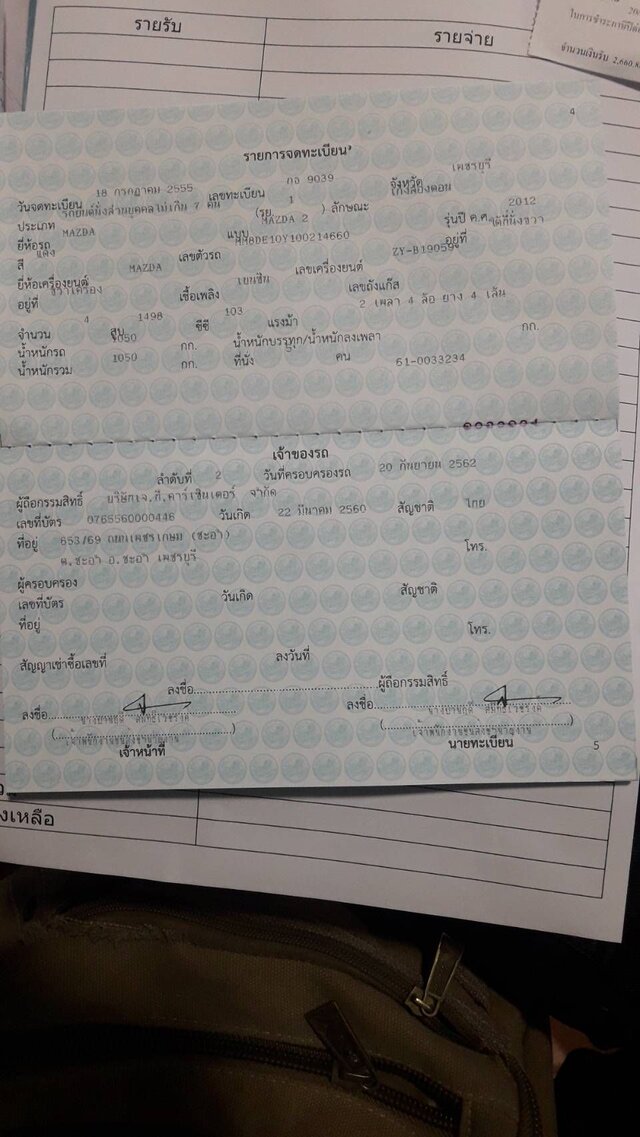 รายรับ
รายจ่าย
20/
ในการชำระภาษีปีต่อ
จำนวนเงินรับ 2,660.8
4
รายการจดทะเบียน
วันจดทะเบียน 18 กรกฎาคม 2555 เลขทะเบียน กอ 9039 จังหวัด เพชรบุรี
ประเภท รถยนต์นั่งส่วนบุคคลไม่เกิน 7 คน (รย. 1 ) ลักษณะ เก๋งสองตอน
ยี่ห้อรถ MAZDA แบบ MAZDA 2 รุ่นปี ค.ศ. 2012
สี แดง เลขตัวรถ MM8DE10Y100214660 อยู่ที่ ใต้ที่นั่งขวา
ยี่ห้อเครื่องยนต์ MAZDA เลขเครื่องยนต์ ZY-B19059
อยู่ที่ ขวาเครื่อง เชื้อเพลิง เบนซิน เลขถังแก๊ส
จำนวน 4 สูบ 1498 ซีซี 103 แรงม้า 2 เพลา 4 ล้อ ยาง 4 เส้น
น้ำหนักรถ 1050 กก. น้ำหนักบรรทุก/น้ำหนักลงเพลา กก.
น้ำหนักรวม 1050 กก. ที่นั่ง 5 คน 61-0033234
เจ้าของรถ
ลำดับที่ 2 วันที่ครอบครองรถ 20 กันยายน 2562
ผู้ถือกรรมสิทธิ์ บริษัทเจ.ที.คาร์เซ็นเตอร์ จำกัด
เลขที่บัตร 0765560000446 วันเกิด 22 มีนาคม 2560 สัญชาติ ไทย
ที่อยู่ 653/69 ถนนเพชรเกษม (ชะอำ)
ต.ชะอำ อ.ชะอำ เพชรบุรี โทร.
ผู้ครอบครอง
เลขที่บัตร วันเกิด สัญชาติ
ที่อยู่ โทร.
สัญญาเช่าซื้อเลขที่ ลงวันที่
ลงชื่อ ผู้ถือกรรมสิทธิ์
ลงชื่อ ลงชื่อ
เจ้าพนักงานขนส่งชำนาญงาน เจ้าพนักงานขนส่งชำนาญงาน
เจ้าหน้าที่ นายทะเบียน 5
งเหลือ